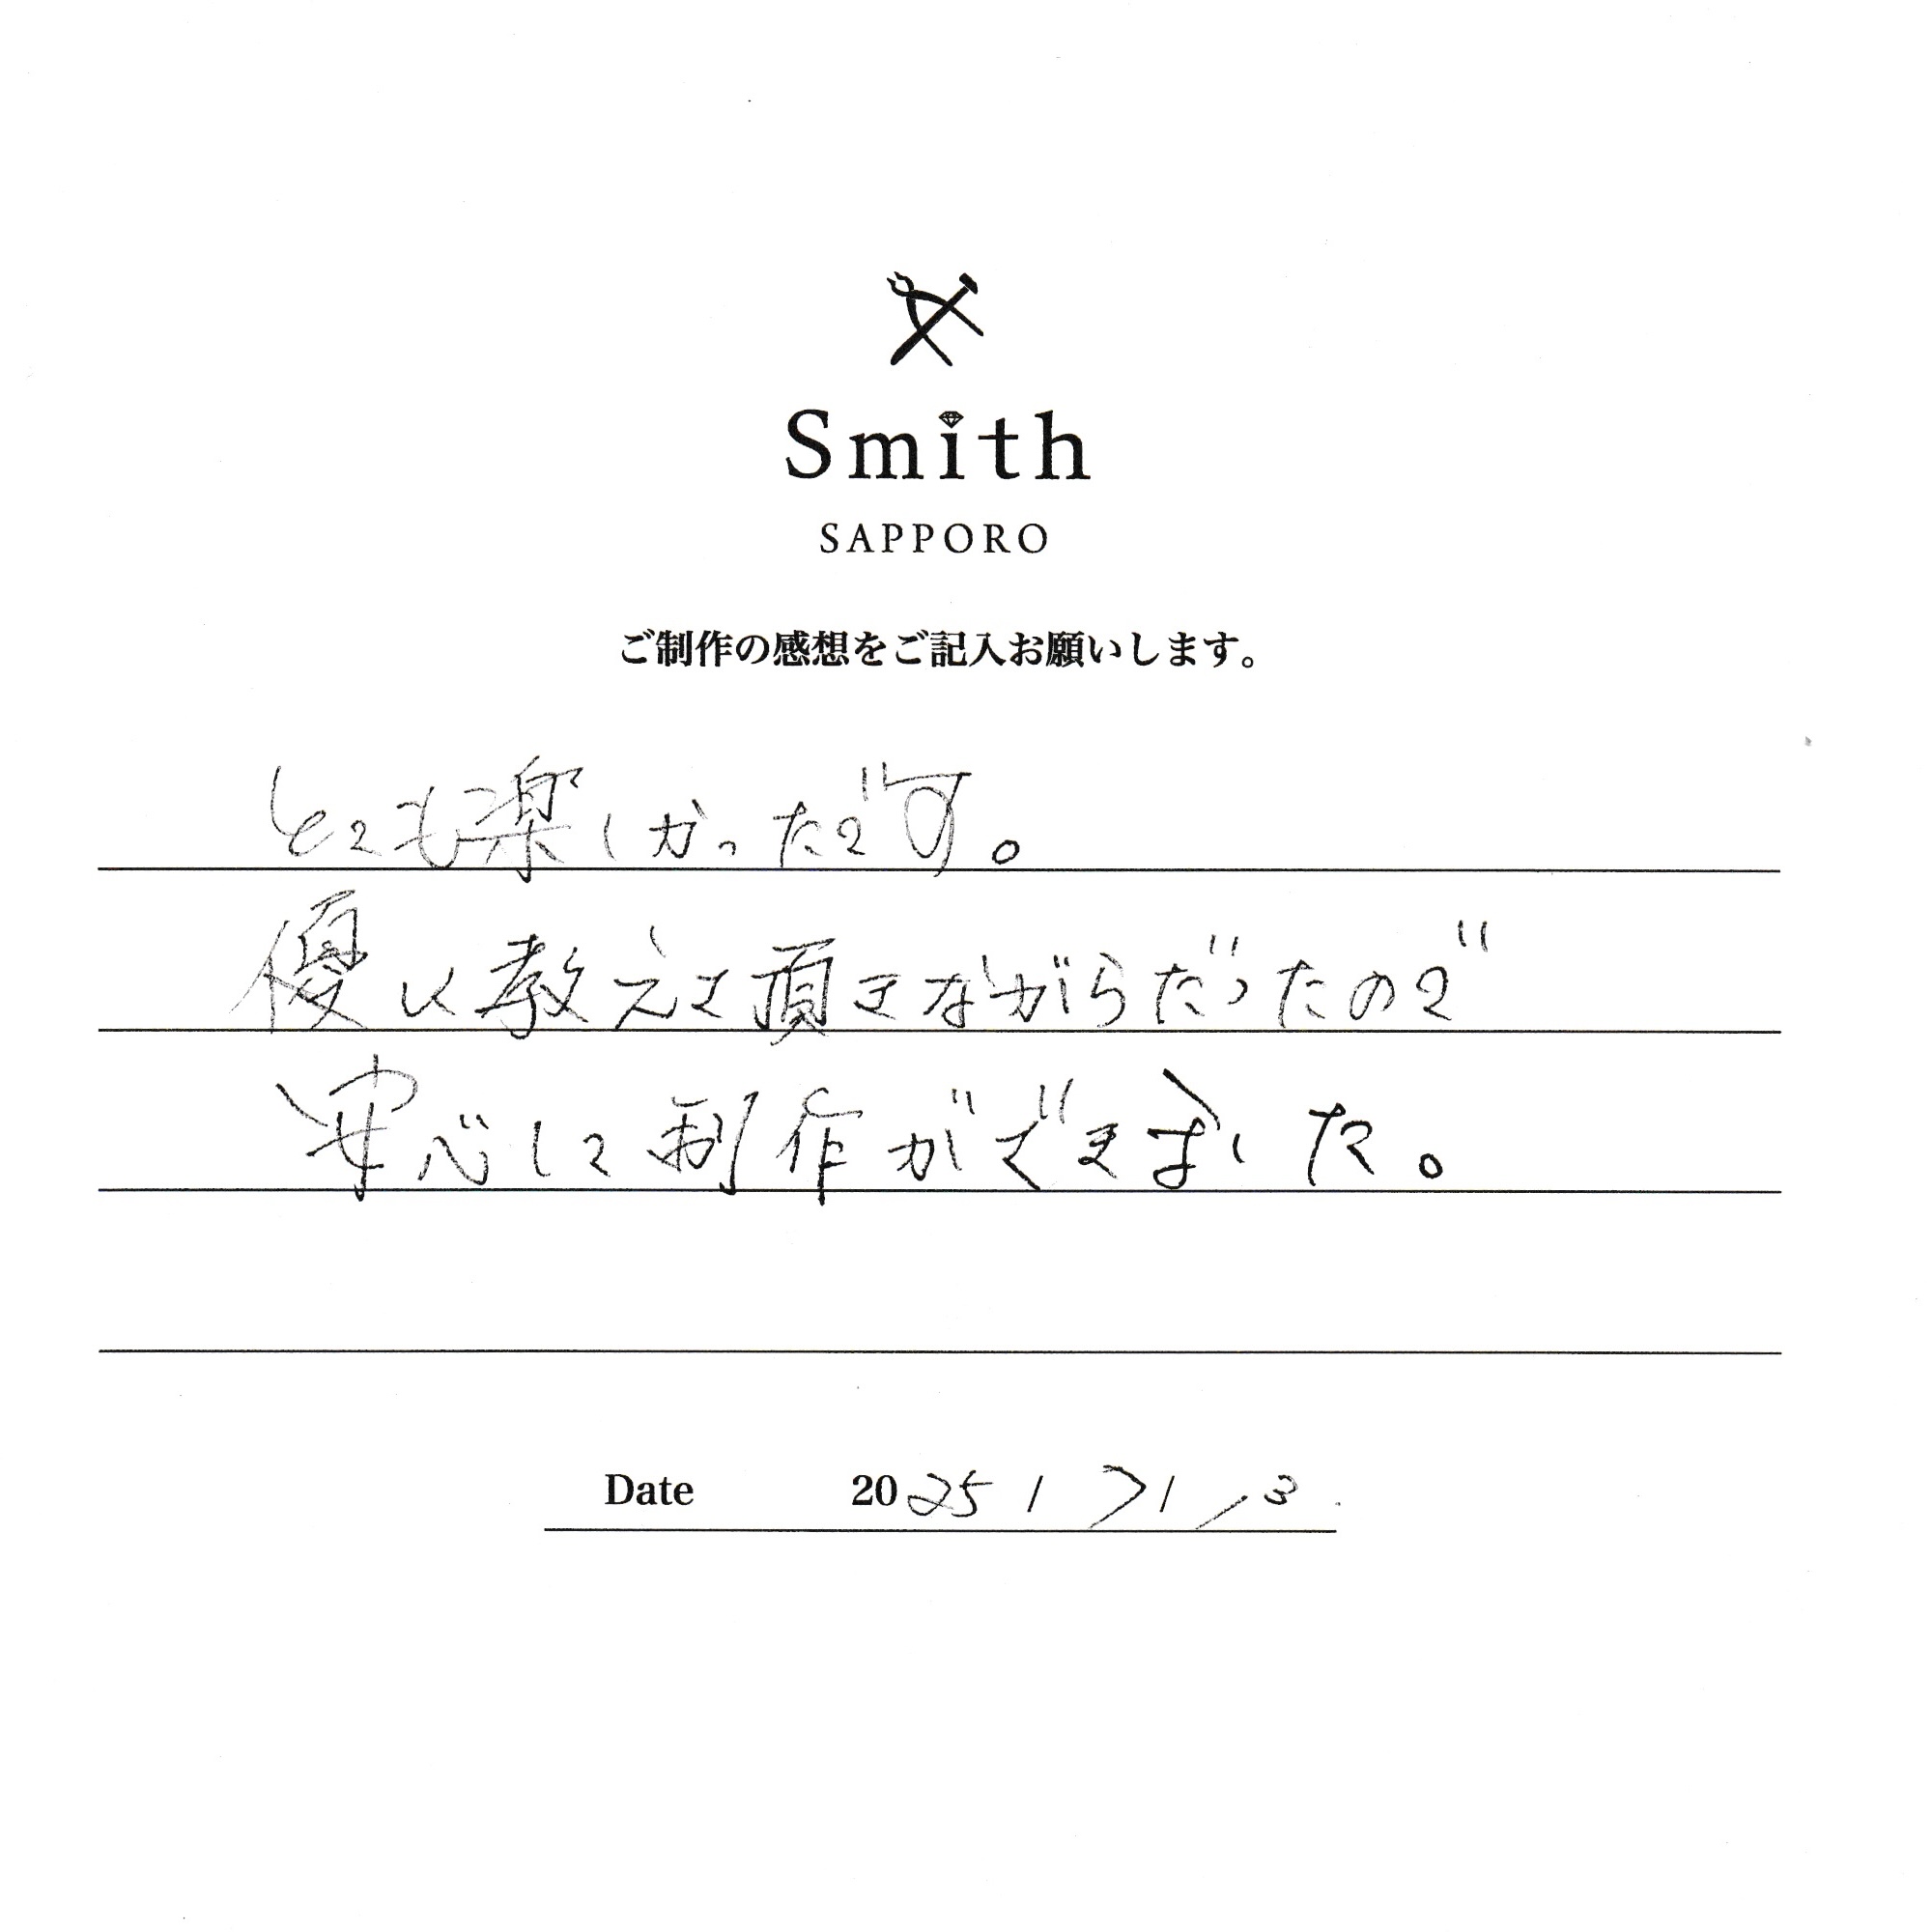 Smith
SAPPORO
ご制作の感想をご記入お願いします。
とても楽しかったです。
優しく教えて頂きながらだったので
安心して制作ができました。
Date 2025